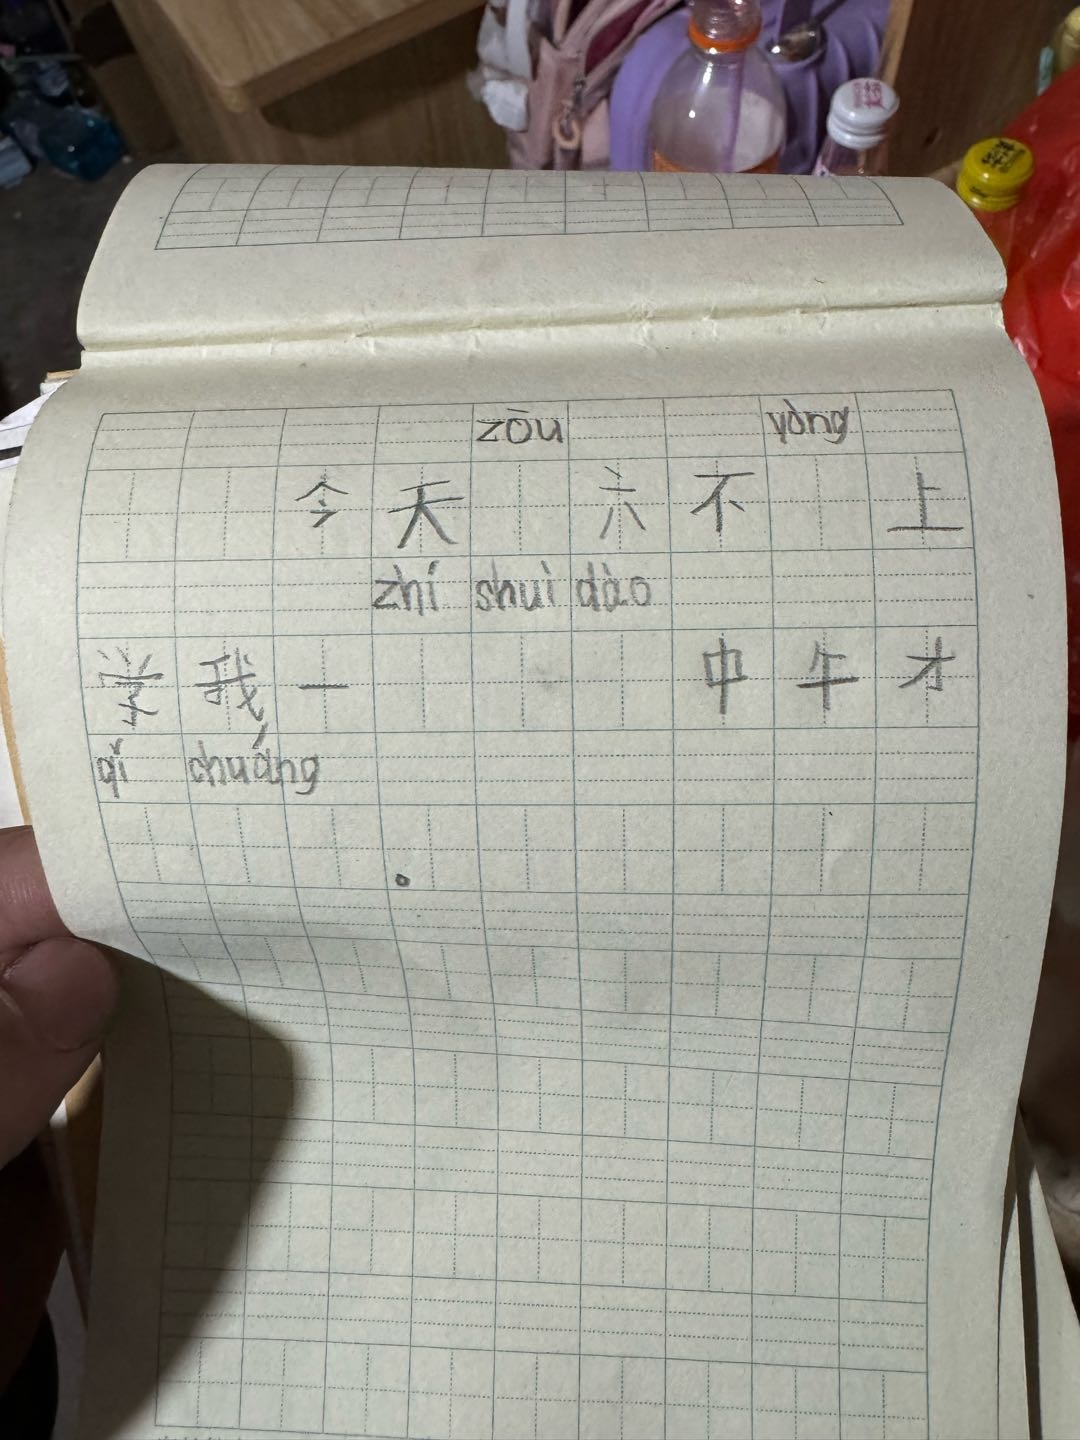 zòu yòng
今天 六不 上
zhí shuì dào
学我一 中午才
qǐ chuáng
。